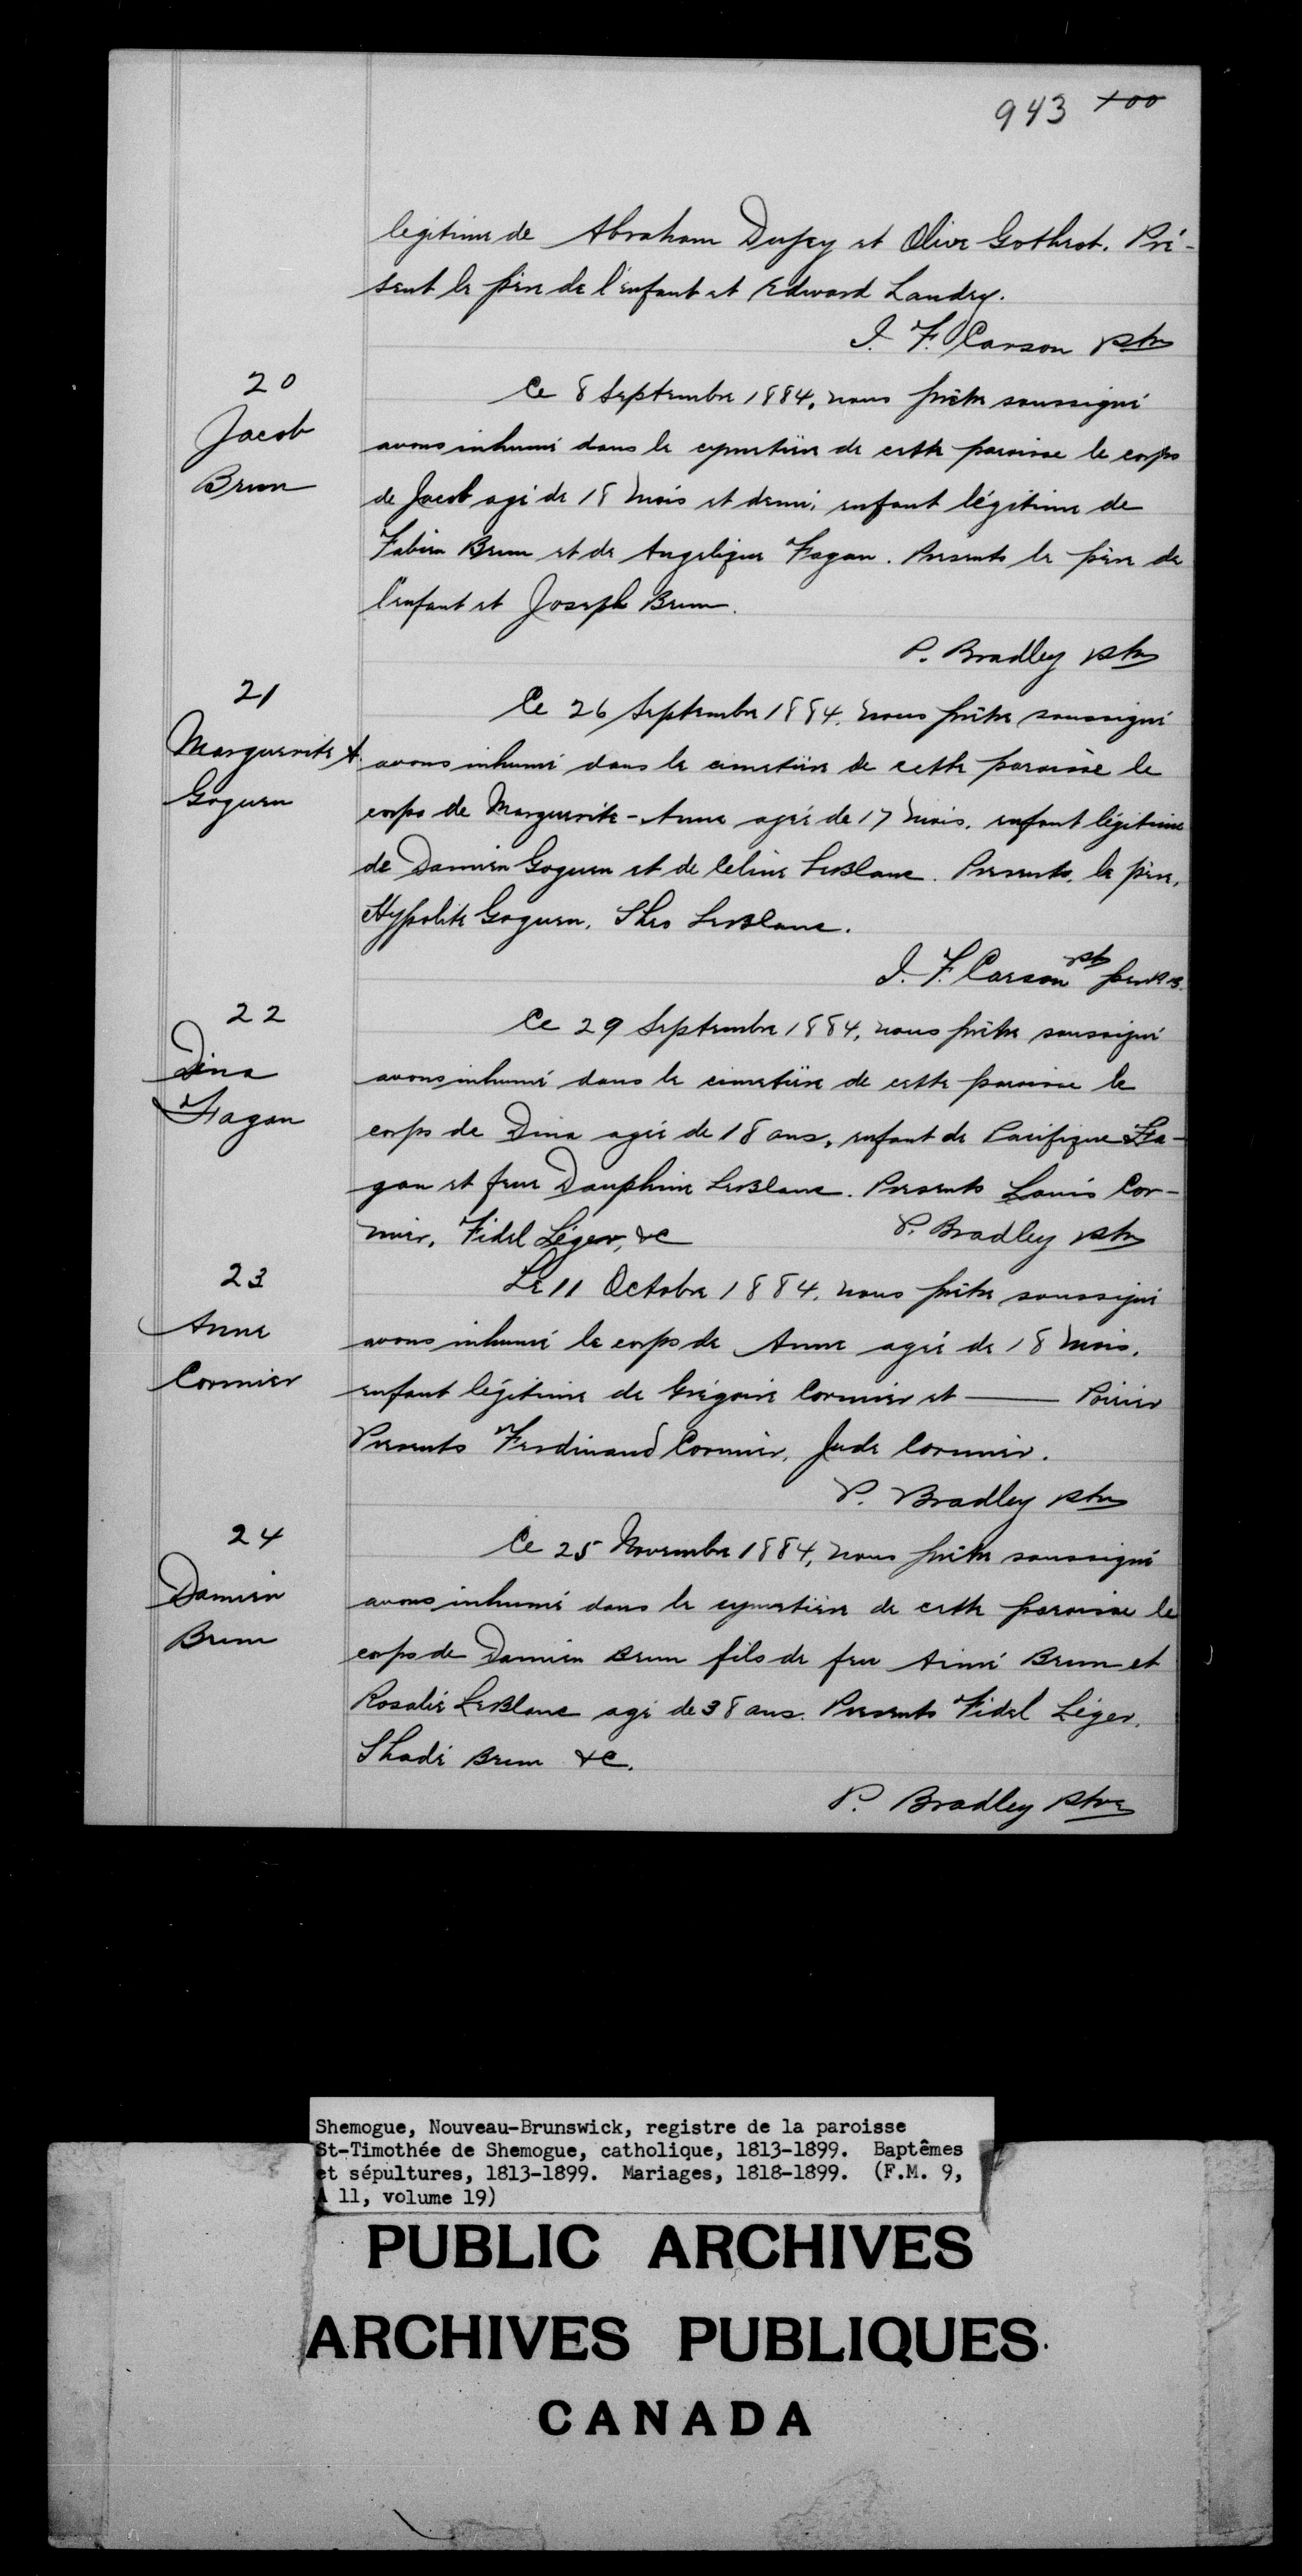 943 100
legitime de Abraham Dupey et Olive Gothrot. Pré-
sent le père de l'enfant et Edward Landry.
J. F. Carson ptre
20
Jacob
Brun
Ce 8 Septembre 1884, nous prêtre soussigné
avons inhumé dans le cymetière de cette paroisse le corps
de Jacob agé de 18 mois et demi, enfant légitime de
Fabien Brun et de Angelique Fagan. Presents le père de
l'enfant et Joseph Brun.
P. Bradley ptre
21
Marguerite A.
Goguen
Ce 26 Septembre 1884. nous prêtre soussigné
avons inhumé dans le cimetière de cette paroisse le
corps de Marguerite-Anne agée de 17 mois. enfant légitime
de Damien Goguen et de Celine LeBlanc. Presents, le père,
Hypolite Goguen, Theo LeBlanc.
J. F. Carson ptr
22
Dina
Fagan
Ce 29 Septembre 1884, nous prêtre soussigné
avons inhumé dans le cimetière de cette paroisse le
corps de Dina agée de 18 ans, enfant de Pacifique Fa-
gan et feue Dauphine LeBlanc. Presents Louis Cor-
mier, Fidel Léger, &c P. Bradley ptre
23
Anne
Cormier
Le 11 Octobre 1884. nous prêtre soussigné
avons inhumé le corps de Anne agée de 18 mois.
enfant légitime de Grégoire Cormier et ——— Poirier
Presents Ferdinand Cormier, Jude Cormier.
P. Bradley ptre
24
Damien
Brun
Ce 25 Novembre 1884, nous prêtre soussigné
avons inhumé dans le cymetière de cette paroisse le
corps de Damien Brun fils de feu Aimé Brun et
Rosalie LeBlanc agé de 38 ans. Presents Fidel Léger,
Thadé Brun &c.
P. Bradley ptre
Shemogue, Nouveau-Brunswick, registre de la paroisse
St-Timothée de Shemogue, catholique, 1813-1899. Baptêmes
et sépultures, 1813-1899. Mariages, 1818-1899. (F.M. 9,
A 11, volume 19)
PUBLIC ARCHIVES
ARCHIVES PUBLIQUES
CANADA